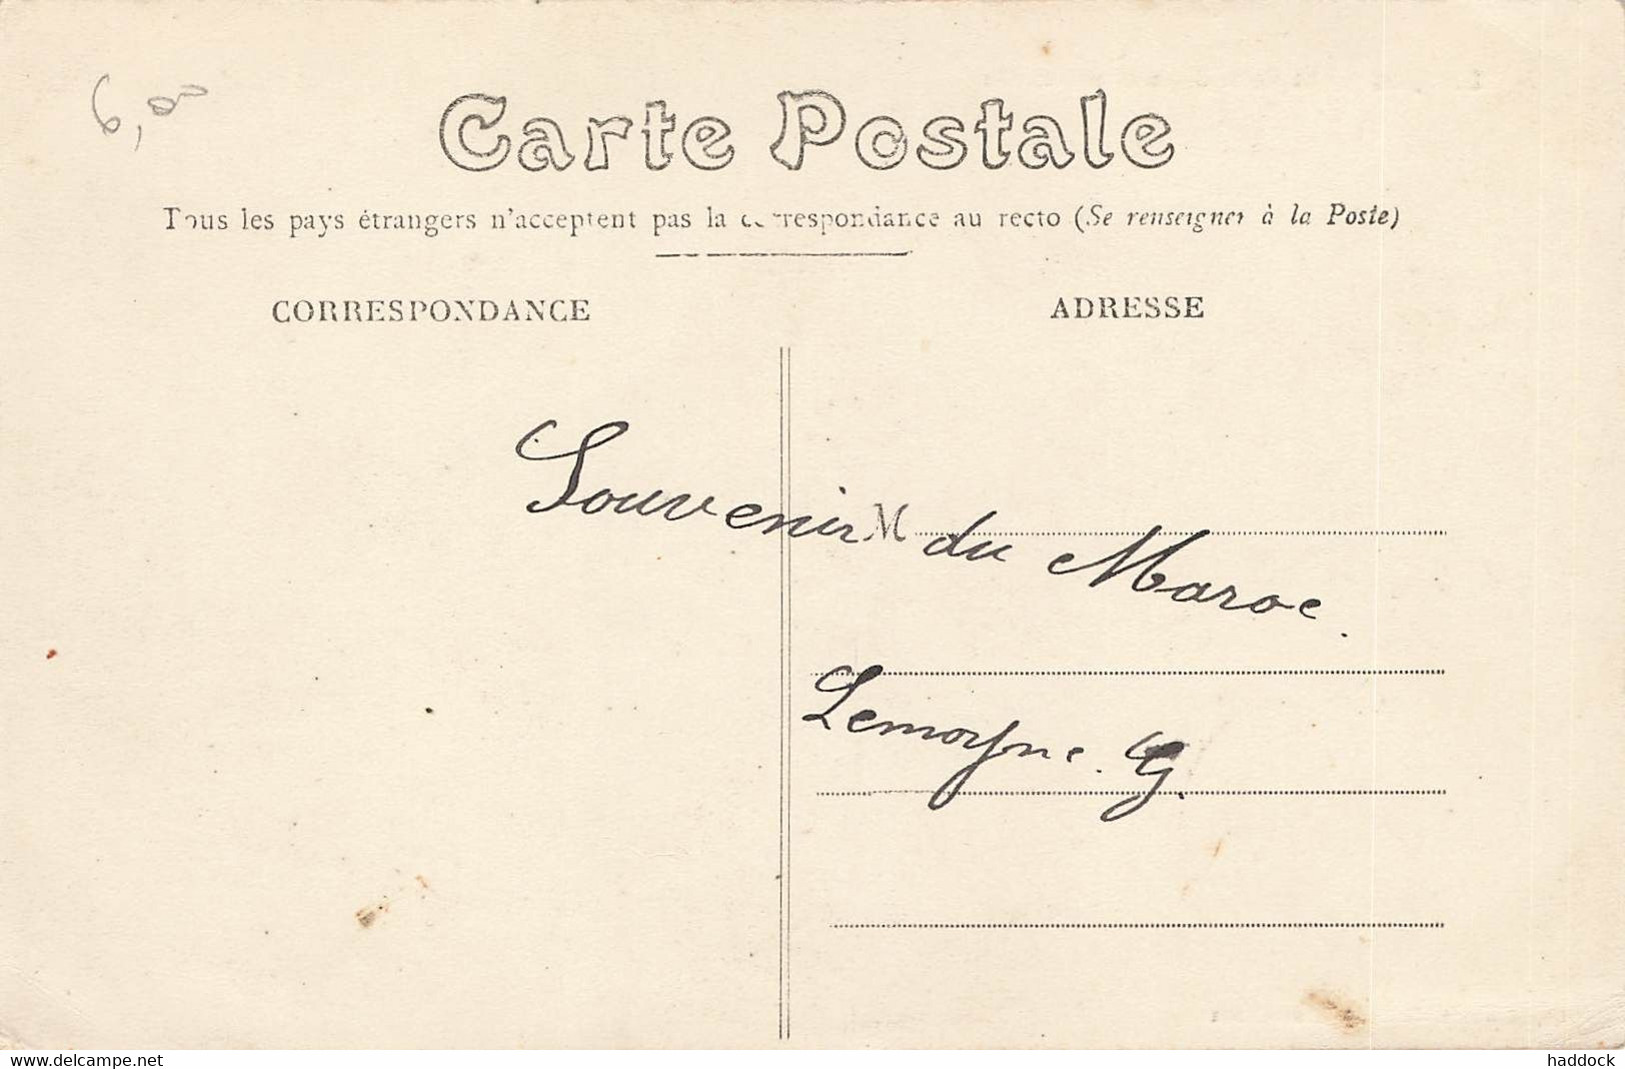 6,00
Carte Postale
Tous les pays étrangers n'acceptent pas la correspondance au recto (Se renseigner à la Poste)
CORRESPONDANCE
ADRESSE
M
Souvenir du Maroc.
Lemoyne. G.
www.delcampe.net
haddock